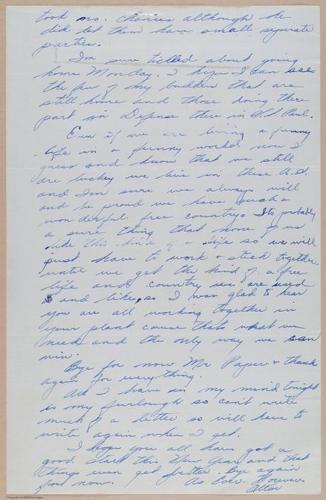 took no. chances although he
did let them have small separate
parties.
I'm sure tickled about going
home Monday. I hope I can see
the few of my buddies that are
still home and those doing there
part in Defense there in Old Paul.
Even if we are living a funny
life in a funny world now I
guess and know that we still
are lucky we live in these U.S.
and I'm sure we always will
and be proud we have such a
wonderful free country. Its probably
a sure thing that none of us
like this kind of a life so we will
just have to work & stick together
until we get the kind of a free
life and country we are used
to and like, so I was glad to hear
you are all working together in
your plant cause thats what we
need and the only way we can
win.
Bye for now Mr Paper & thank
again for every thing.
All I have on my mind tonight
is my furlough so cant write
much of a letter so will have to
write again when I get.
I hope you all have got a
good start this New Year and that
things soon get better. Bye again
for now. As Ever. Forever.